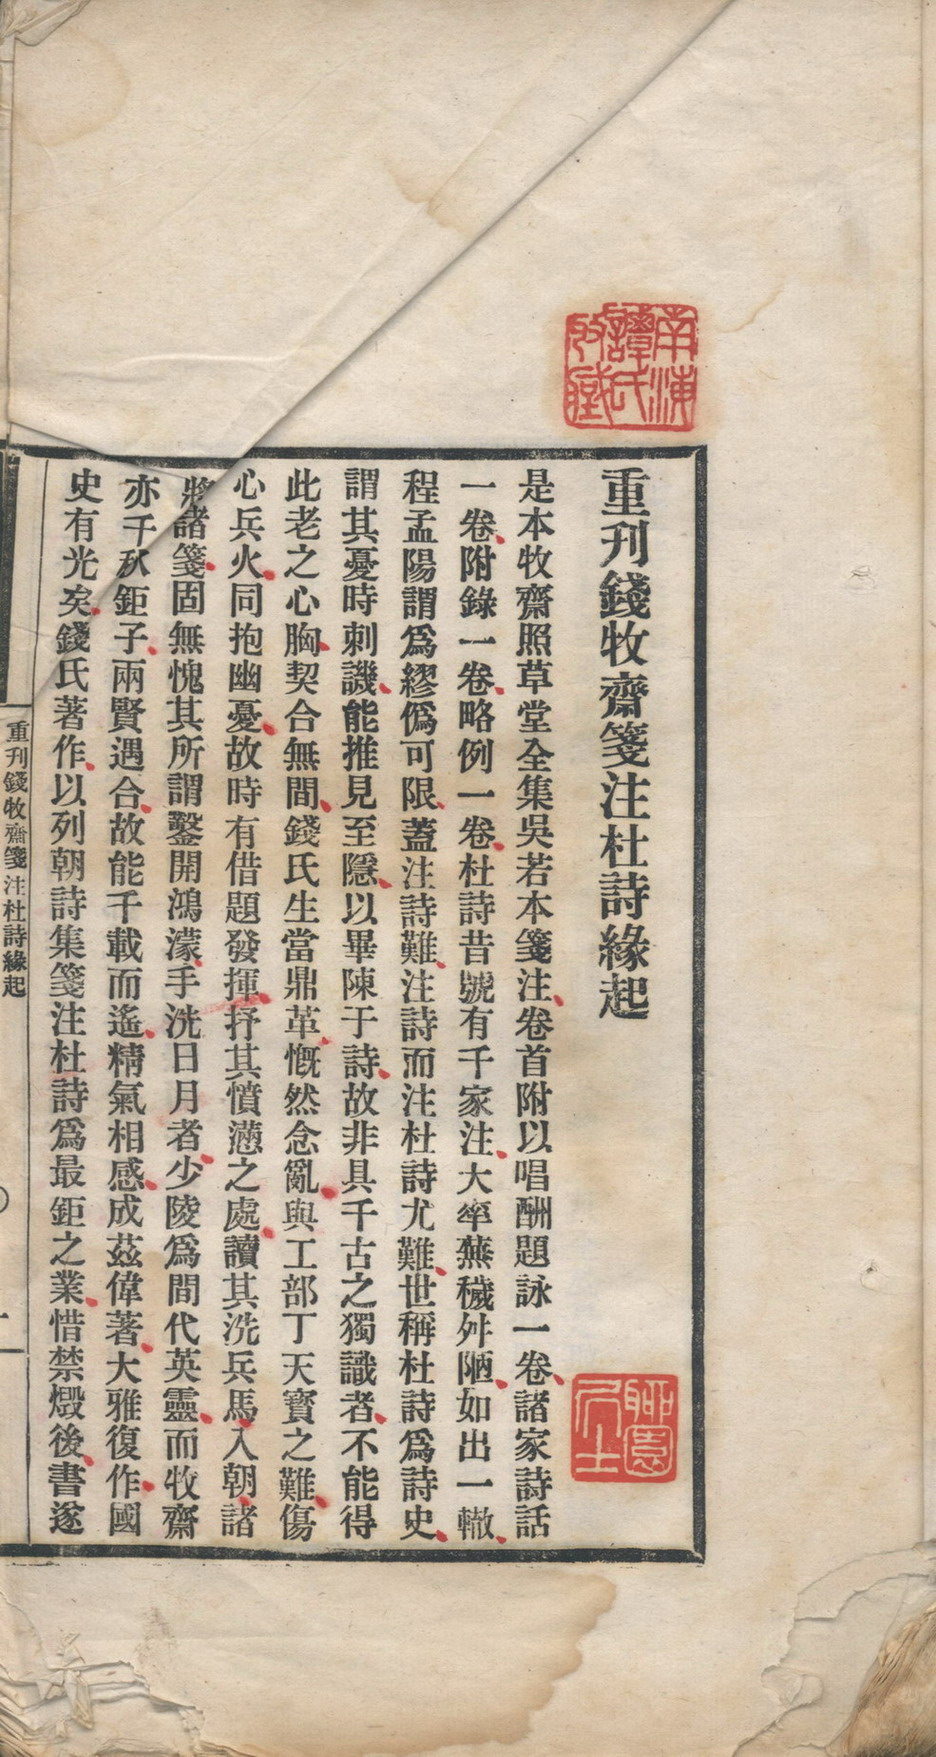 重刊錢牧齋箋注杜詩緣起
是本牧齋照草堂全集吳若本箋注卷首附以唱酬題詠一卷諸家詩話
一卷附錄一卷略例一卷杜詩昔號有千家注大率蕪穢舛陋如出一轍
程孟陽謂爲繆僞可限蓋注詩難注詩而注杜詩尤難世稱杜詩爲詩史
謂其憂時刺譏能推見至隱以畢陳于詩故非具千古之獨識者不能得
此老之心胸契合無間錢氏生當鼎革慨然念亂與工部丁天寶之難傷
心兵火同抱幽憂故時有借題發揮抒其憤懣之處讀其洗兵馬入朝諸
將諸箋固無愧其所謂鑿開鴻濛手洗日月者少陵爲間代英靈而牧齋
亦千秋鉅子兩賢遇合故能千載而遙精氣相感成茲偉著大雅復作國
史有光矣錢氏著作以列朝詩集箋注杜詩爲最鉅之業惜禁燬後書遂
重刊錢牧齋箋注杜詩緣起
一
聊園居士